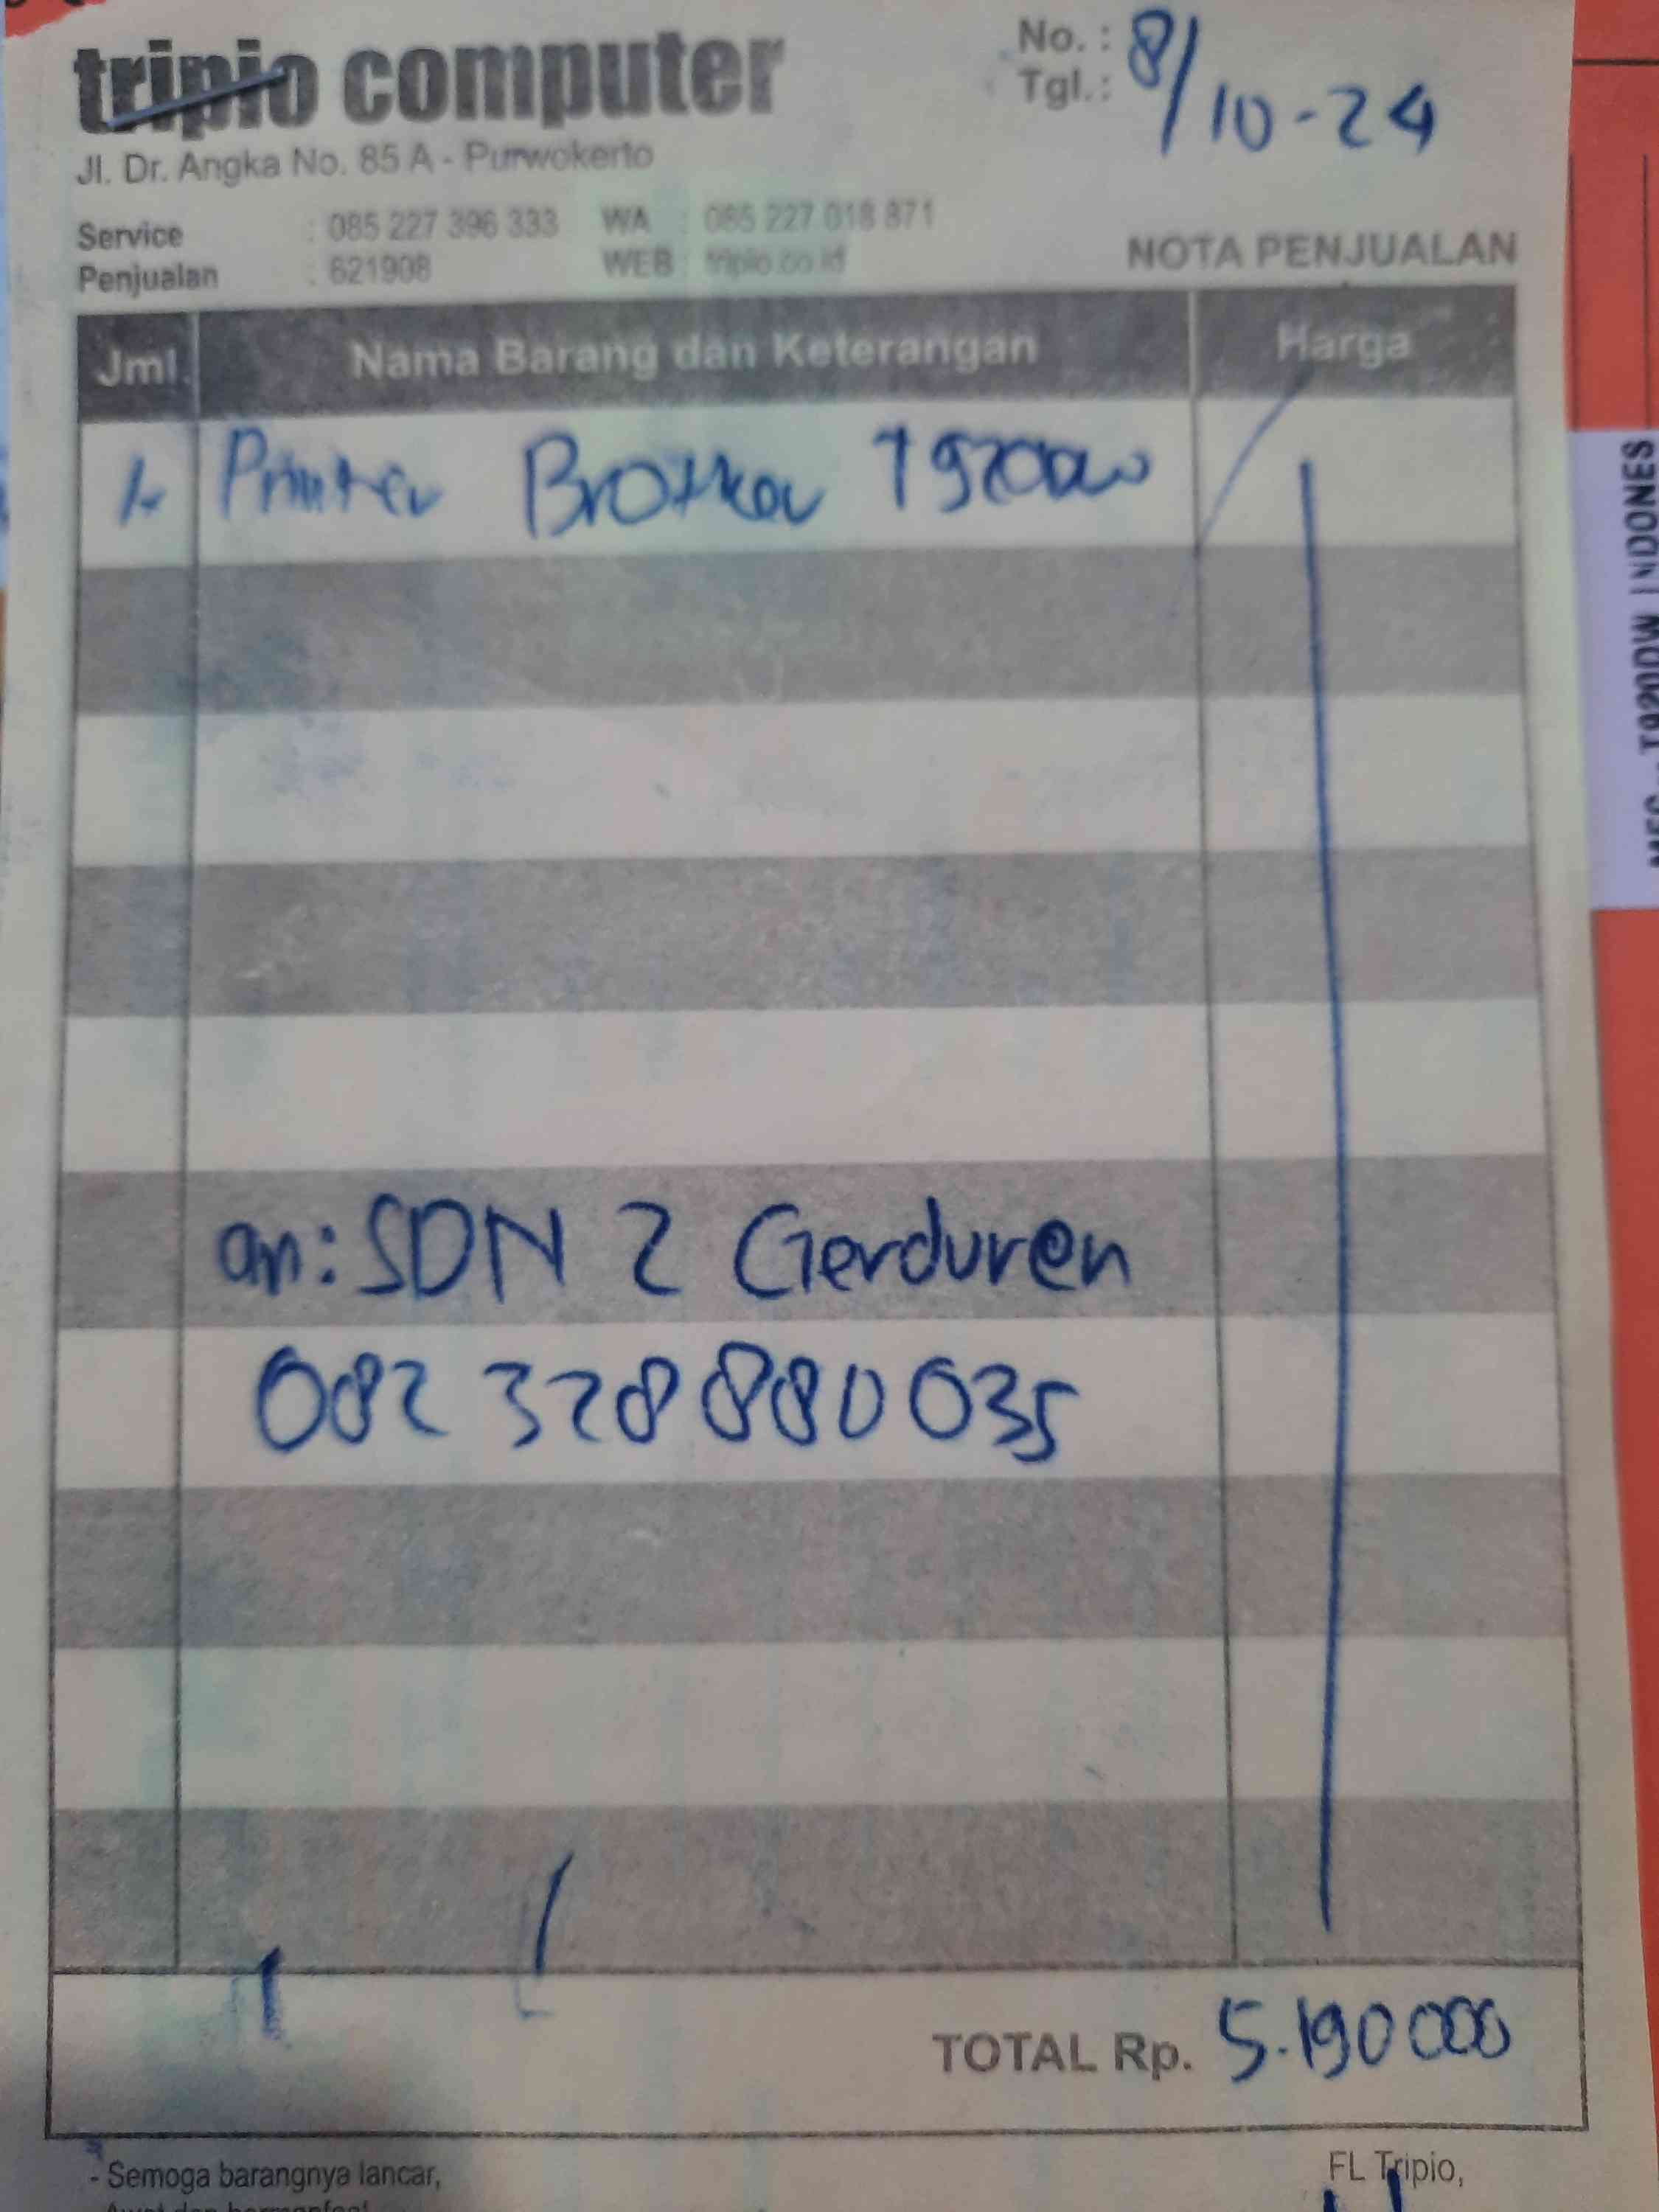 tripio computer
No. :
Tgl. : 8/10-24
Jl. Dr. Angka No. 85 A - Purwokerto
Service : 085 227 396 333 WA : 085 227 018 871
Penjualan : 621908 WEB : tripio.co.id
NOTA PENJUALAN
Jml. Nama Barang dan Keterangan Harga
1 Printer Brother T920DW
an: SDN 2 Gerduren
082 328 880 035
TOTAL Rp. 5.190000
- Semoga barangnya lancar,
FL Tripio,
T920DW INDONES